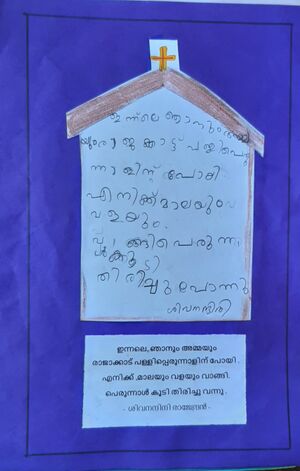 ഇന്നലെ ഞാനും അമ്മ
യും രാജക്കാട്ട് പള്ളിപെരു
ന്നാളിന് പോയി
എനിക്ക് മാലയും
വളയും
വാങ്ങി പെരുന്നാ
ൾ കൂടി
തിരിച്ചു പോന്നു
ശിവനന്ദിനി
ഇന്നലെ,ഞാനും അമ്മയും
രാജാക്കാട് പള്ളിപ്പെരുന്നാളിന് പോയി .
എനിക്ക് .മാലയും വളയും വാങ്ങി.
പെരുന്നാൾ കൂടി തിരിച്ചു വന്നു .
- ശിവനന്ദിനി രാജേന്ദ്രൻ -